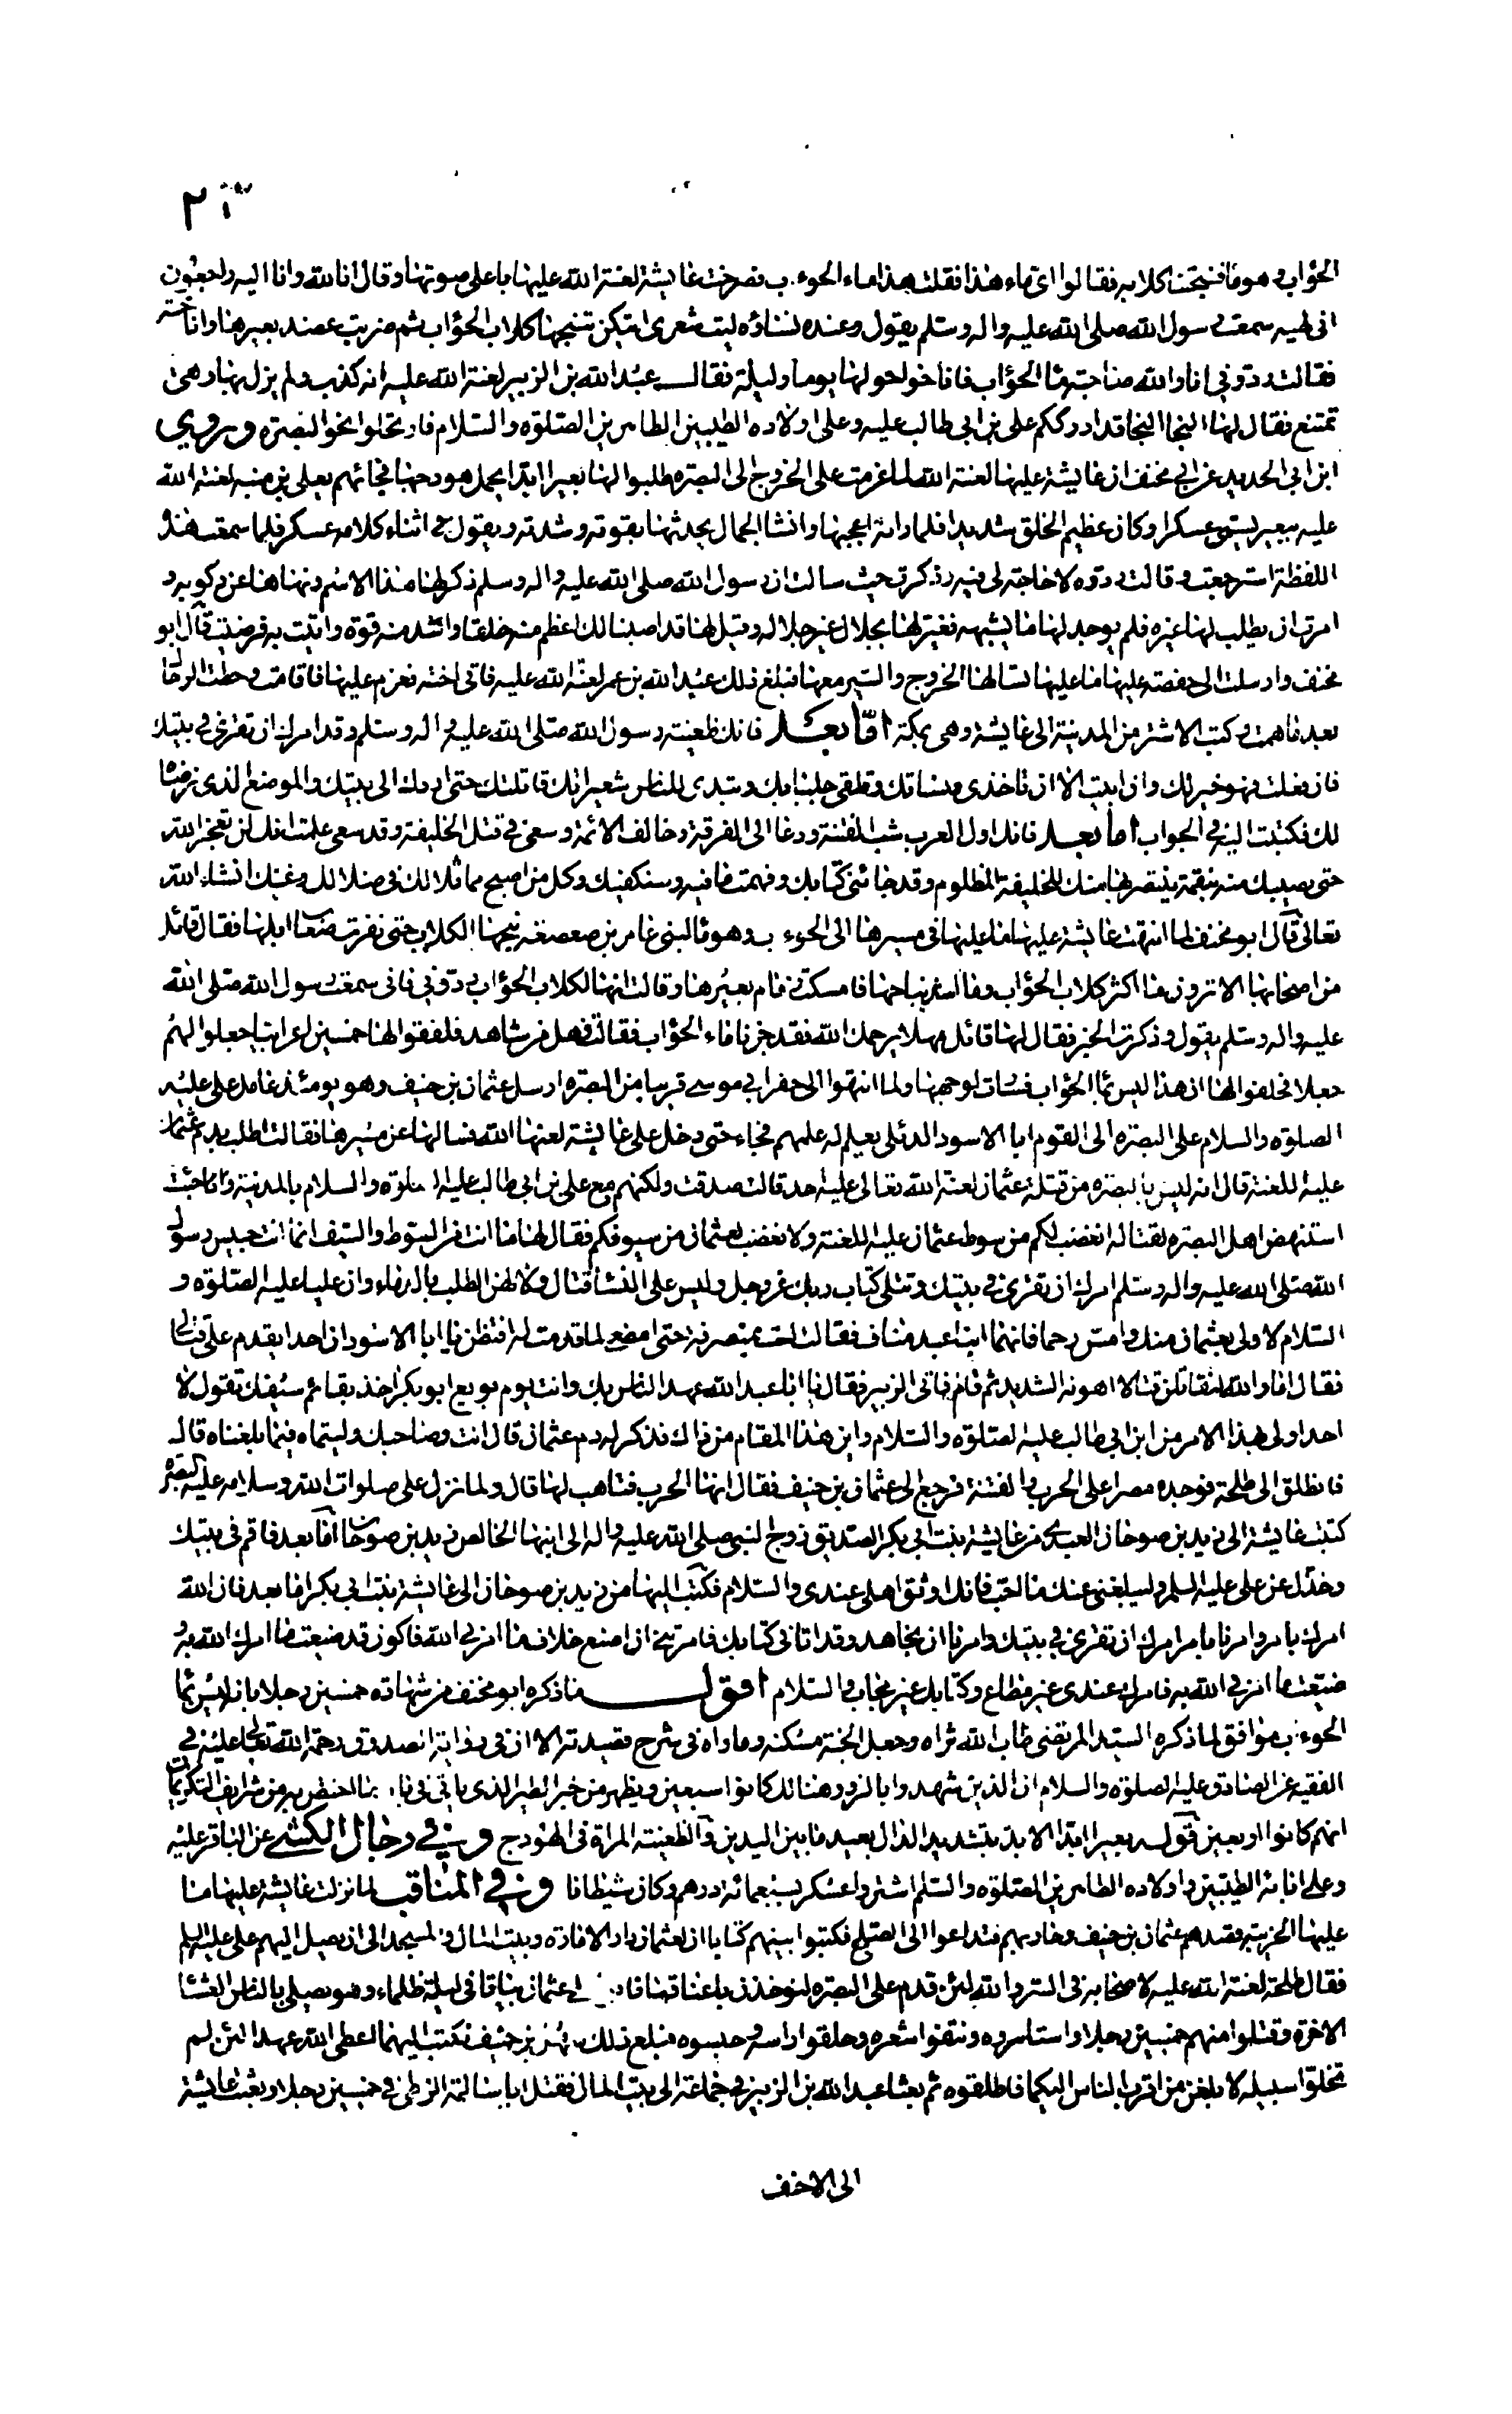 الحوأب وهو ماء فنبحتنا كلابه فقالوا اى ماء هذا فقلت هذا ماء الحوءب فصرخت عايشة لعنة الله عليها باعلى صوتها وقال انا لله وانا اليه راجعون
انى لهيه سمعت رسول الله صلى الله عليه واله وسلم يقول وعنده نساؤه ليت شعرى ايتكن تنبحها كلاب الحوأب ثم ضربت عضد بعيرها واناخته
فقالت ردونى انا والله صاحبة ماء الحوأب فاناخوا حولها يوما وليلة فقال عبد الله بن الزبير لعنة الله عليه انه كذب ولم يزل بها وهى
تمتنع فقال لها النجا النجا قد ادرككم على بن ابى طالب عليه وعلى اولاده الطيبين الطاهرين الصلوة والسلام فارتحلوا نحو البصرة وروى
ابن ابى الحديد عن ابى مخنف ان عايشة عليها لعنة الله لما عزمت على الخروج الى البصره طلبوا لها بعيرا ايدا يحمل هودجها فجائهم يعلى بن منبه لعنة الله
عليه ببعير يسمى عسكرا وكان عظيم الخلق شديدا فلما راته اعجبها وانشا الجمال يحدثها بقوته وشدته ويقول فى اثناء كلامه عسكر فلما سمعت هذه
اللفظة استرجعت وقالت ردوه لا حاجة لى فيه وذكرت حيث سالت ان رسول الله صلى الله عليه واله وسلم ذكر لها هذا الاسم ونهاها عن ركوبه و
امرت ان يطلب لها غيره فلم يوجد لها ما يشبهه فغير لها بجلال غير جلاله وقيل لها قد اصبنا لك اعظم منه خلقا واشد منه قوة واتيت به فرضيت قال ابو
مخنف وارسلت الى حفصة عليها ما عليها تسالها الخروج والسير معها فبلغ ذلك عبد الله بن عمر لعنة الله عليه فاتى اخته فعزم عليها فاقامت وحطت الرحال
بعد ما همت وكتب الاشتر من المدينة الى عايشة وهى بمكة اما بعد فانك ظعينة رسول الله صلى الله عليه واله وسلم وقد امرك ان تقرى فى بيتك
فان فعلت فهو خير لك وان ابيت الا ان تاخذى منساتك وتلقى جلبابك وتبدى للناس شعيراتك قاتلتك حتى اردك الى بيتك والموضع الذى يرضاه
لك فكتبت اليه فى الجواب اما بعد فانك اول العرب شب الفتنة ودعا الى الفرقة وخالف الائمة وسعى فى قتل الخليفة وقد علمت انك لن تعجز الله
حتى يصيبك منه بنقمة ينتصر بها منك للخليفة المظلوم وقد جائنى كتابك وفهمت ما فيه وسنكفيك وكل من اصبح مماثلا لك فى ضلالك وغيك انشاء الله
تعالى قال ابو مخنف لما انتهت عايشة عليها ما عليها فى مسيرها الى الحوءب وهو ماء لبنى عامر بن صعصعة نبحتها الكلاب حتى نفرت صعاب ابلها فقال قائل
من اصحابها الا ترون ما اكثر كلاب الحوأب وما اشد نباحها فامسكت زمام بعيرها وقالت انها لكلاب الحوأب ردونى فانى سمعت رسول الله صلى الله
عليه واله وسلم يقول وذكرت الخبر فقال لها قائل مهلا يرحمك الله فقد جزنا ماء الحوأب فقالت فهل من شاهد فلفقوا لها خمسين اعرابيا جعلوا لهم
جعلا فحلفوا لها ان هذا ليس بماء الحوأب فسارت لوجهها ولما انتهوا الى حفر ابى موسى قريبا من البصره ارسل عثمان بن حنيف وهو يومئذ عامل على عليه
الصلوة والسلام على البصره الى القوم ابا الاسود الدئلى يعلم له علمهم فجاء حتى دخل على عايشة لعنها الله فسالها عن مسيرها فقالت اطلب بدم عثمان
عليه اللعنة قال انه ليس بالبصره من قتلة عثمان لعنة الله تعالى عليه احد قالت صدقت ولكنهم مع على بن ابى طالب عليه الصلوة والسلام بالمدينة وجئت
استنهض اهل البصره لقتاله انغضب لكم من سوط عثمان عليه اللعنة ولا نغضب لعثمان من سيوفكم فقال لها ما انت من السوط والسيف انما انت حبيس رسول
الله صلى الله عليه واله وسلم امرك ان تقرى فى بيتك وتتلى كتاب ربك عز وجل وليس على النساء قتال ولا لهن الطلب بالدماء وان عليا عليه الصلوة و
السلام لاولى بعثمان منك وامس رحما فانهما ابنا عبد مناف فقالت لست بمنصرفة حتى امضى لما قدمت له افتظن يا ابا الاسود ان احدا يقدم على قتالى
فقال اما والله لتقاتلن قتالا اهونه الشديد ثم قام فاتى الزبير فقال يا ابا عبد الله عهد الناس بك وانت يوم بويع ابو بكر اخذ بقائم سيفك تقول لا
احد اولى بهذا الامر من ابن ابى طالب عليه الصلوة والسلام واين هذا المقام من ذاك فذكر له دم عثمان قال انت وصاحبك وليتماه فيما بلغناه قال
فانطلق الى طلحة فوجده مصرا على الحرب والفتنة فرجع الى عثمان بن حنيف فقال انها الحرب فتاهب لها قال ولما نزل على صلوات الله وسلامه عليه البصره
كتبت عايشة الى زيد بن صوحان العبدى من عايشة بنت ابى بكر الصديق زوج النبى صلى الله عليه واله الى ابنها الخالص زيد بن صوحان اما بعد فاقم فى بيتك
وخذل عن على عليه السلم وليبلغنى عنك ما احب فانك اوثق اهلى عندى والسلام فكتب اليها من زيد بن صوحان الى عايشة بنت ابى بكر اما بعد فان الله
امرك بامر وامرنا بامر امرك ان تقرى فى بيتك وامرنا ان نجاهد وقد اتانى كتابك فامرتنى ان اصنع خلاف ما امرنى الله فاكون قد صنعت ما امرك الله به و
صنعت ما امرنى الله به فامرك عندى غير مطاع وكتابك غير مجاب والسلام اقول ما ذكره ابو مخنف من شهادة خمسين رجلا بانه ليس بماء
الحوءب موافق لما ذكره السيد المرتضى طاب الله ثراه وجعل الجنة مسكنه وماواه فى شرح قصيدته الا ان فى رواية الصدوق رحمة الله تعالى عليه فى
الفقيه عن الصادق عليه الصلوة والسلام ان الذين شهدوا بالزور هنالك كانوا سبعين ويظهر من خبر الطير الذى ياتى فى باب ما اختص به من شرايف التكريمات
انهم كانوا اربعين قوله بعيرا ايدا الايد بتشديد الدال بعيد ما بين اليدين والظعينة المراة فى الهودج وفى رجال الكشى عن الباقر عليه
وعلى ابائه الطيبين واولاده الطاهرين الصلوة والسلم اشتروا عسكر بسبعمائة درهم وكان شيطانا وفى المناقب لما نزلت عايشة عليها ما
عليها الخريبة قصدهم عثمان بن حنيف وحاربهم فتداعوا الى الصلح فكتبوا بينهم كتابا ان لعثمان دار الامارة وبيت المال والمسجد الى ان يصل اليهم على عليه السلم
فقال طلحة لعنة الله عليه لاصحابه فى السر والله لئن قدم على البصره لنوخذن باعناقنا فاتوا عثمان بياتا فى ليلة ظلماء وهو يصلى بالناس العشاء
الاخرة وقتلوا منهم خمسين رجلا واستاسروه ونتفوا شعره وحلقوا راسه وحبسوه فبلغ ذلك سهل بن حنيف فكتب اليهما اعطى الله عهدا لئن لم
تخلوا سبيله لابلغن من اقرب الناس اليكما فاطلقوه ثم بعثا عبد الله بن الزبير فى جماعة الى بيت المال فقتل ابا سالمة الزطى فى خمسين رجلا وبعثت عايشة
الى الاحنف